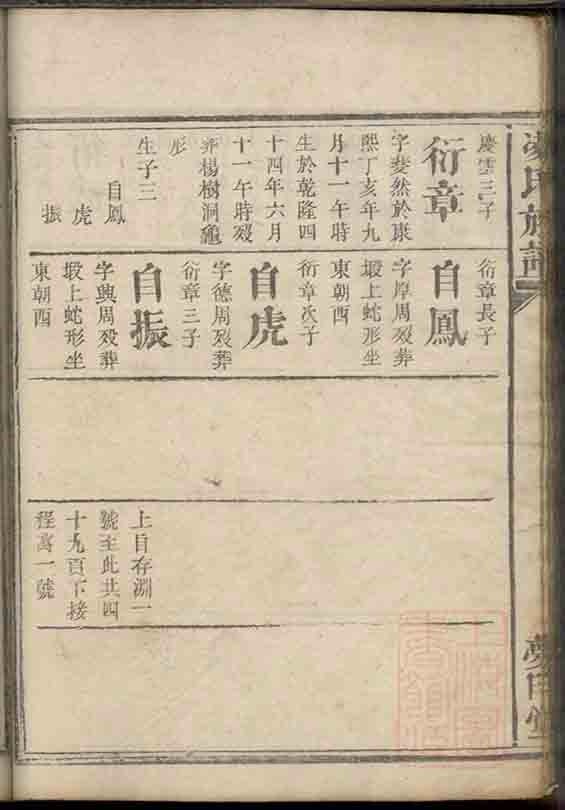 慶雲三子
衍章
字斐然於康
熙丁亥年九
月十一午時
生於乾隆四
十四年六月
十一午時歿
葬楊樹洞龜
形
生子三
自鳳
虎
振
衍章長子
自鳳
字厚周歿葬
塅上蛇形坐
東朝酉
衍章次子
自虎
字德周歿葬
衍章三子
自振
字興周歿葬
塅上蛇形坐
東朝酉
上自存淵一
號至此共四
十九頁下接
程萬一號
氏族譜